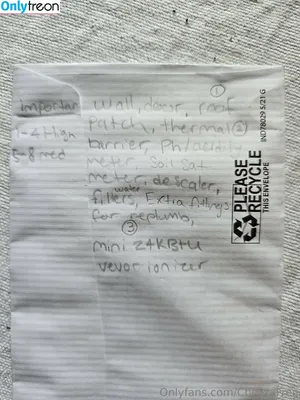 Onlytreon
①
importan wall, door, roof
1-4 High patch, thermal ②
5-8 med barrier, Ph/acidity
meter, Soil Sat
meter, descaler,
water
filters, Extra fittings
for replumb,
③
mini 24K Btu
vevor ionizer
IND78029 5/21 G
PLEASE
RECYCLE
THIS ENVELOPE